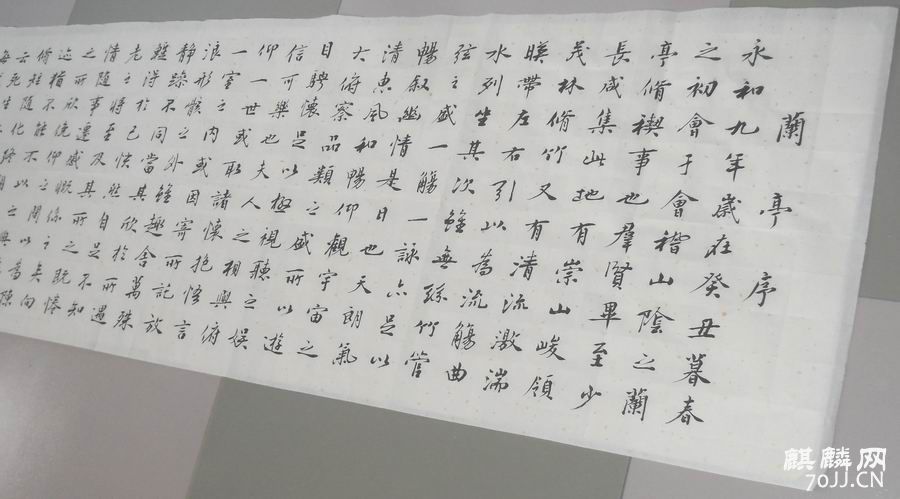 蘭亭序
永和九年歲在癸丑暮春
之初會于會稽山陰之蘭
亭脩禊事也羣賢畢至少
長咸集此地有崇山峻領
茂林脩竹又有清流激湍
暎帶左右引以為流觴曲
水列坐其次雖無絲竹管
弦之盛一觴一詠亦足以
暢叙幽情是日也天朗氣
清惠風和暢仰觀宇宙之
大俯察品類之盛所以遊
目騁懷足以極視聽之娛
信可樂也夫人之相與俯
仰一世或取諸懷抱悟言
一室之內或因寄所託放
浪形骸之外雖趣舍萬殊
靜躁不同當其欣於所遇
蹔得於己快然自足不知
老之將至及其所之既惓
情隨事遷感慨係之矣向
之所欣俛仰之間以為陳
迹猶不能不以之興
脩短隨化終期
云死生
每
麒麟网
70JJ.CN